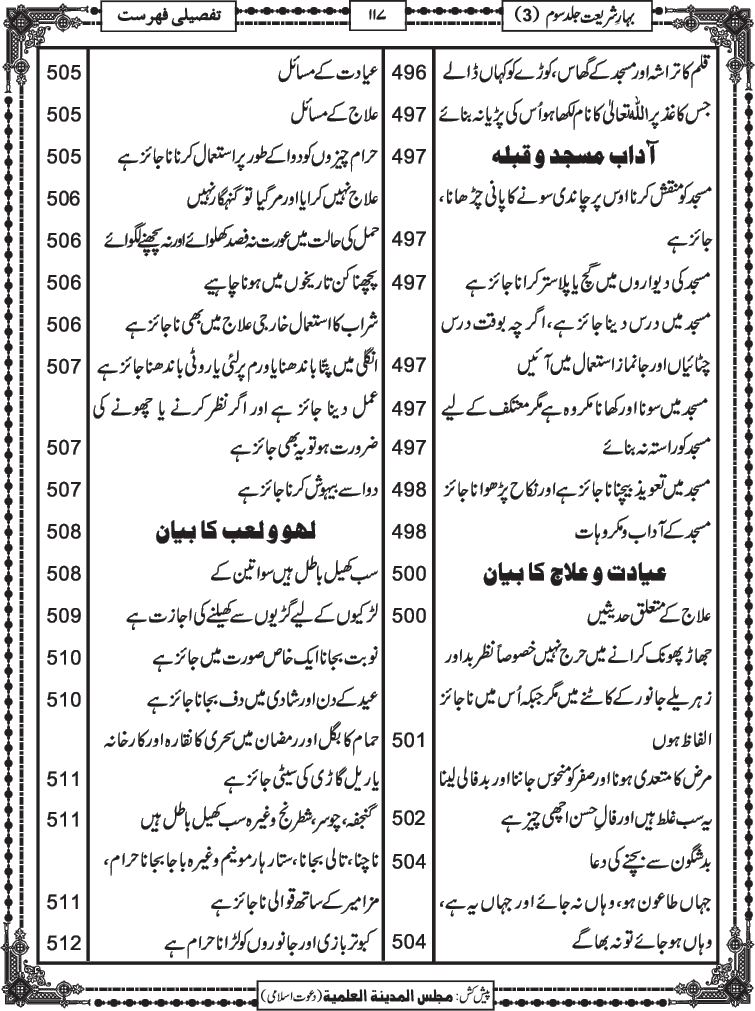 بہارِشریعت جلد سوم (3)
۱۱۷
تفصیلی فہرست
قلم کا تراشہ اور مسجد کے گھاس، کوڑے کو کہاں ڈالے 496
جس کاغذ پر اللّٰه تعالیٰ کا نام لکھا ہو اُس کی پڑیا نہ بنائے 497
آداب مسجد و قبلہ 497
مسجد کو منقش کرنا اوس پر چاندی سونے کا پانی چڑھانا،
جائز ہے 497
مسجد کی دیواروں میں گچ یا پلاستر کرانا جائز ہے 497
مسجد میں درس دینا جائز ہے، اگرچہ بوقت درس
چٹائیاں اور جانماز استعمال میں آئیں 497
مسجد میں سونا اور کھانا مکروہ ہے مگر معتکف کے لیے 497
مسجد کو راستہ نہ بنائے 497
مسجد میں تعویذ بیچنا ناجائز ہے اور نکاح پڑھوانا جائز 498
مسجد کے آداب و مکروہات 498
عیادت و علاج کا بیان 500
علاج کے متعلق حدیثیں 500
جھاڑ پھونک کرانے میں حرج نہیں خصوصاً نظر بد اور
زہریلے جانور کے کاٹنے میں مگر جبکہ اُس میں ناجائز
الفاظ ہوں 501
مرض کا متعدی ہونا اور صفر کو منحوس جاننا اور بد فالی لینا
یہ سب غلط ہیں اور فالِ حسن اچھی چیز ہے 502
بدشگون سے بچنے کی دعا 504
جہاں طاعون ہو، وہاں نہ جائے اور جہاں یہ ہے،
وہاں ہو جائے تو نہ بھاگے 504
عیادت کے مسائل 505
علاج کے مسائل 505
حرام چیزوں کو دوا کے طور پر استعمال کرنا ناجائز ہے 505
علاج نہیں کرایا اور مرگیا تو گنہگار نہیں 506
حمل کی حالت میں عورت نہ فصد کھلوائے اور نہ پچھنے لگوائے 506
پچھنا کن تاریخوں میں ہونا چاہیے 506
شراب کا استعمال خارجی علاج میں بھی ناجائز ہے 506
انگلی میں پِتّا باندھنا یا ورم پر لئی یا روٹی باندھنا جائز ہے 507
عمل دینا جائز ہے اور اگر نظر کرنے یا چھونے کی
ضرورت ہو تو یہ بھی جائز ہے 507
دوا سے بیہوش کرنا جائز ہے 507
لھو و لعب کا بیان 508
سب کھیل باطل ہیں سوا تین کے 508
لڑکیوں کے لیے گڑیوں سے کھیلنے کی اجازت ہے 509
نوبت بجانا ایک خاص صورت میں جائز ہے 510
عید کے دن اور شادی میں دف بجانا جائز ہے 510
حمام کا بگل اور رمضان میں سحری کا نقارہ اور کارخانہ
یا ریل گاڑی کی سیٹی جائز ہے 511
گنجفہ، چوسر، شطرنج وغیرہ سب کھیل باطل ہیں 511
ناچنا، تالی بجانا، ستار ہارمونیم وغیرہ باجا بجانا حرام،
مزامیر کے ساتھ قوالی ناجائز ہے 511
کبوتر بازی اور جانوروں کو لڑانا حرام ہے 512
پیش کش: مجلس المدینۃ العلمیۃ (دعوت اسلامی)